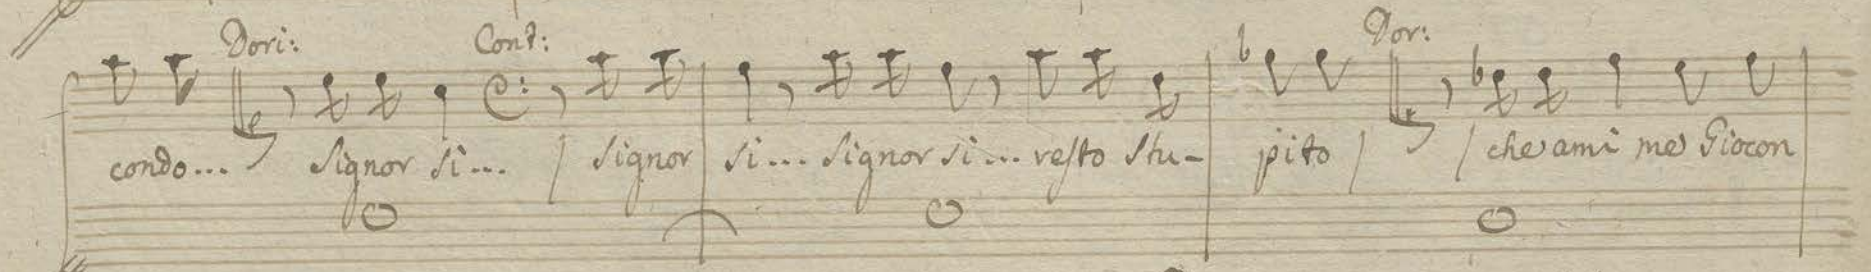 Dori: Cont: Dor:
condo... Signor si... / Signor si... Signor si... resto stu- pito / / che ami me Giocon